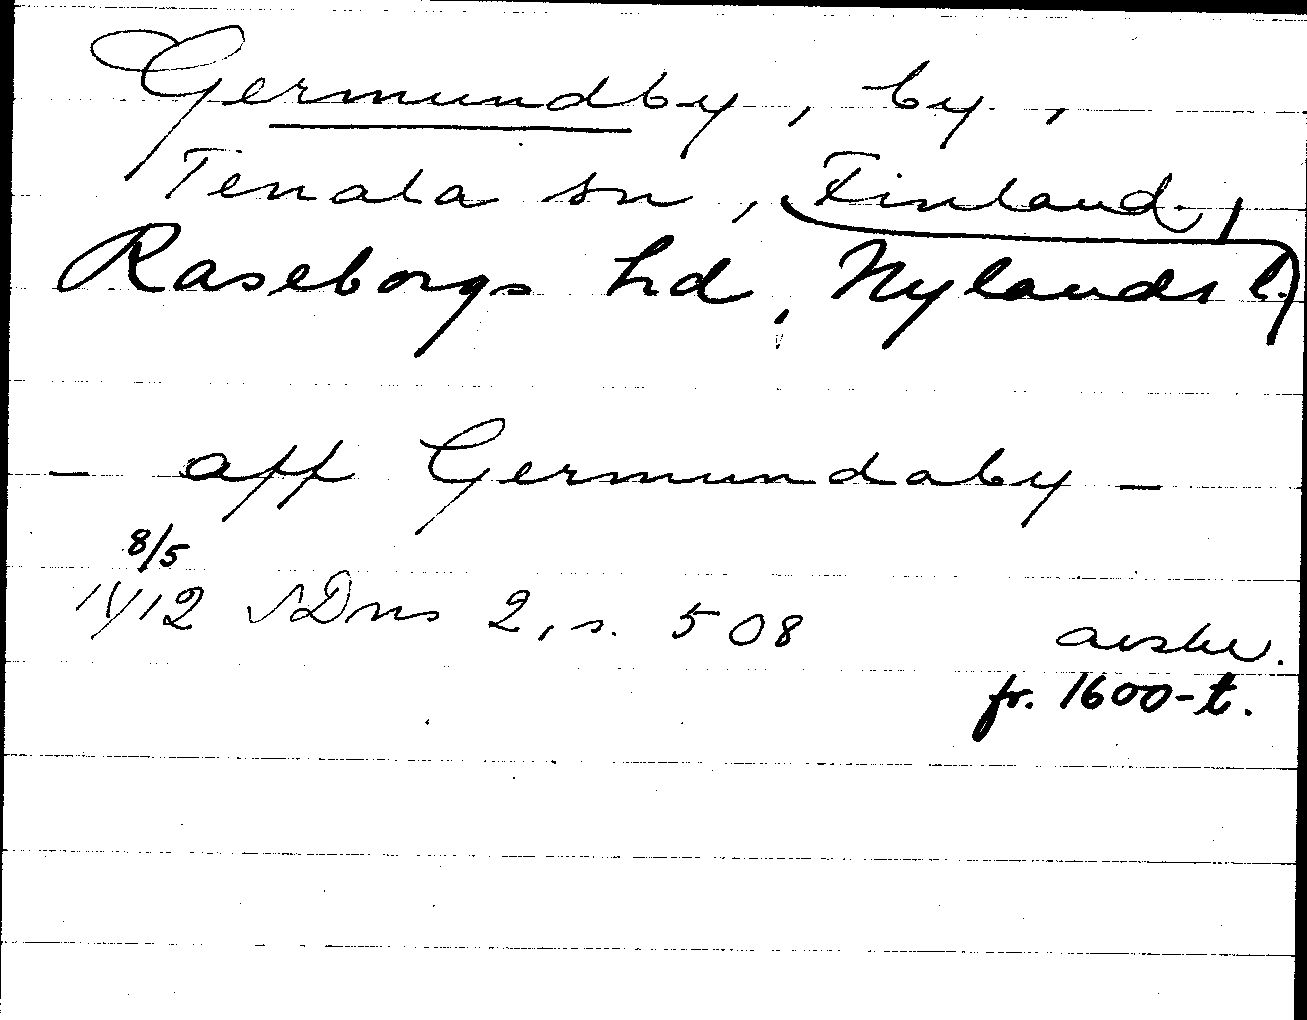 Germundby, by,
Tenala sn, Finland,
Raseborgs hd, Nylands l.
- aff Germundaby -
8/5
1412 SDns 2, s. 508 avskr.
fr. 1600-t.